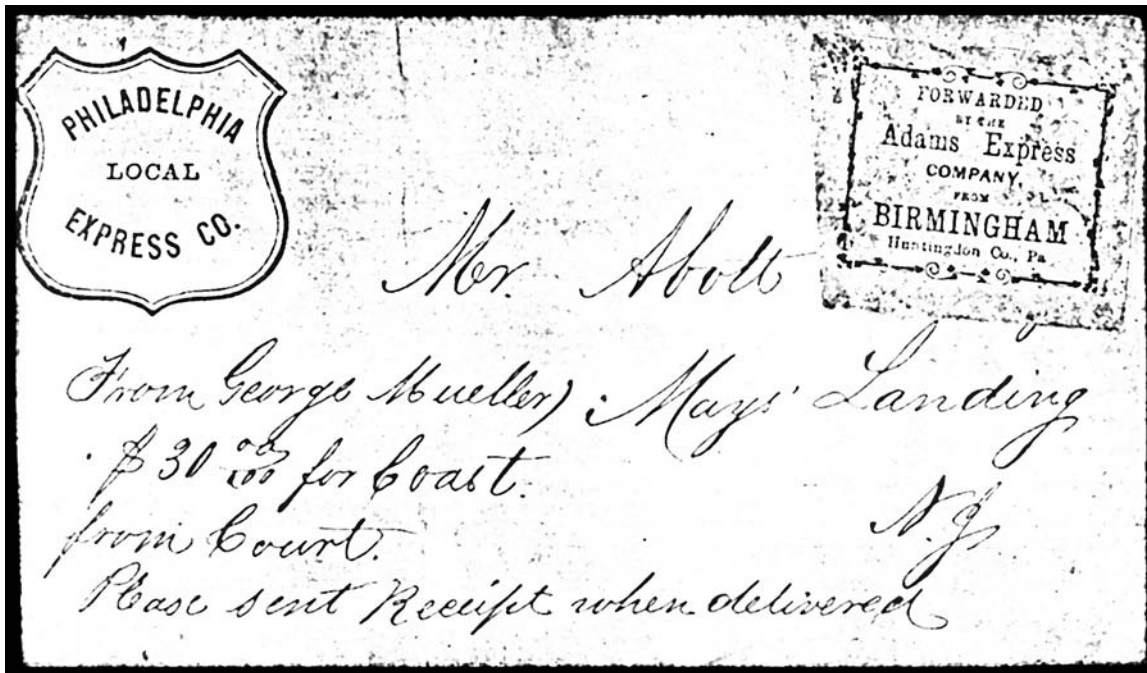 PHILADELPHIA
LOCAL
EXPRESS CO.
FORWARDED
BY THE
Adams Express
COMPANY,
FROM
BIRMINGHAM
Huntingdon Co., Pa
Mr. Abolt
From George Mueller) Mays' Landing
$30 00/100 for Coast.
N.J.
from Court.
Please sent Receipt when delivered